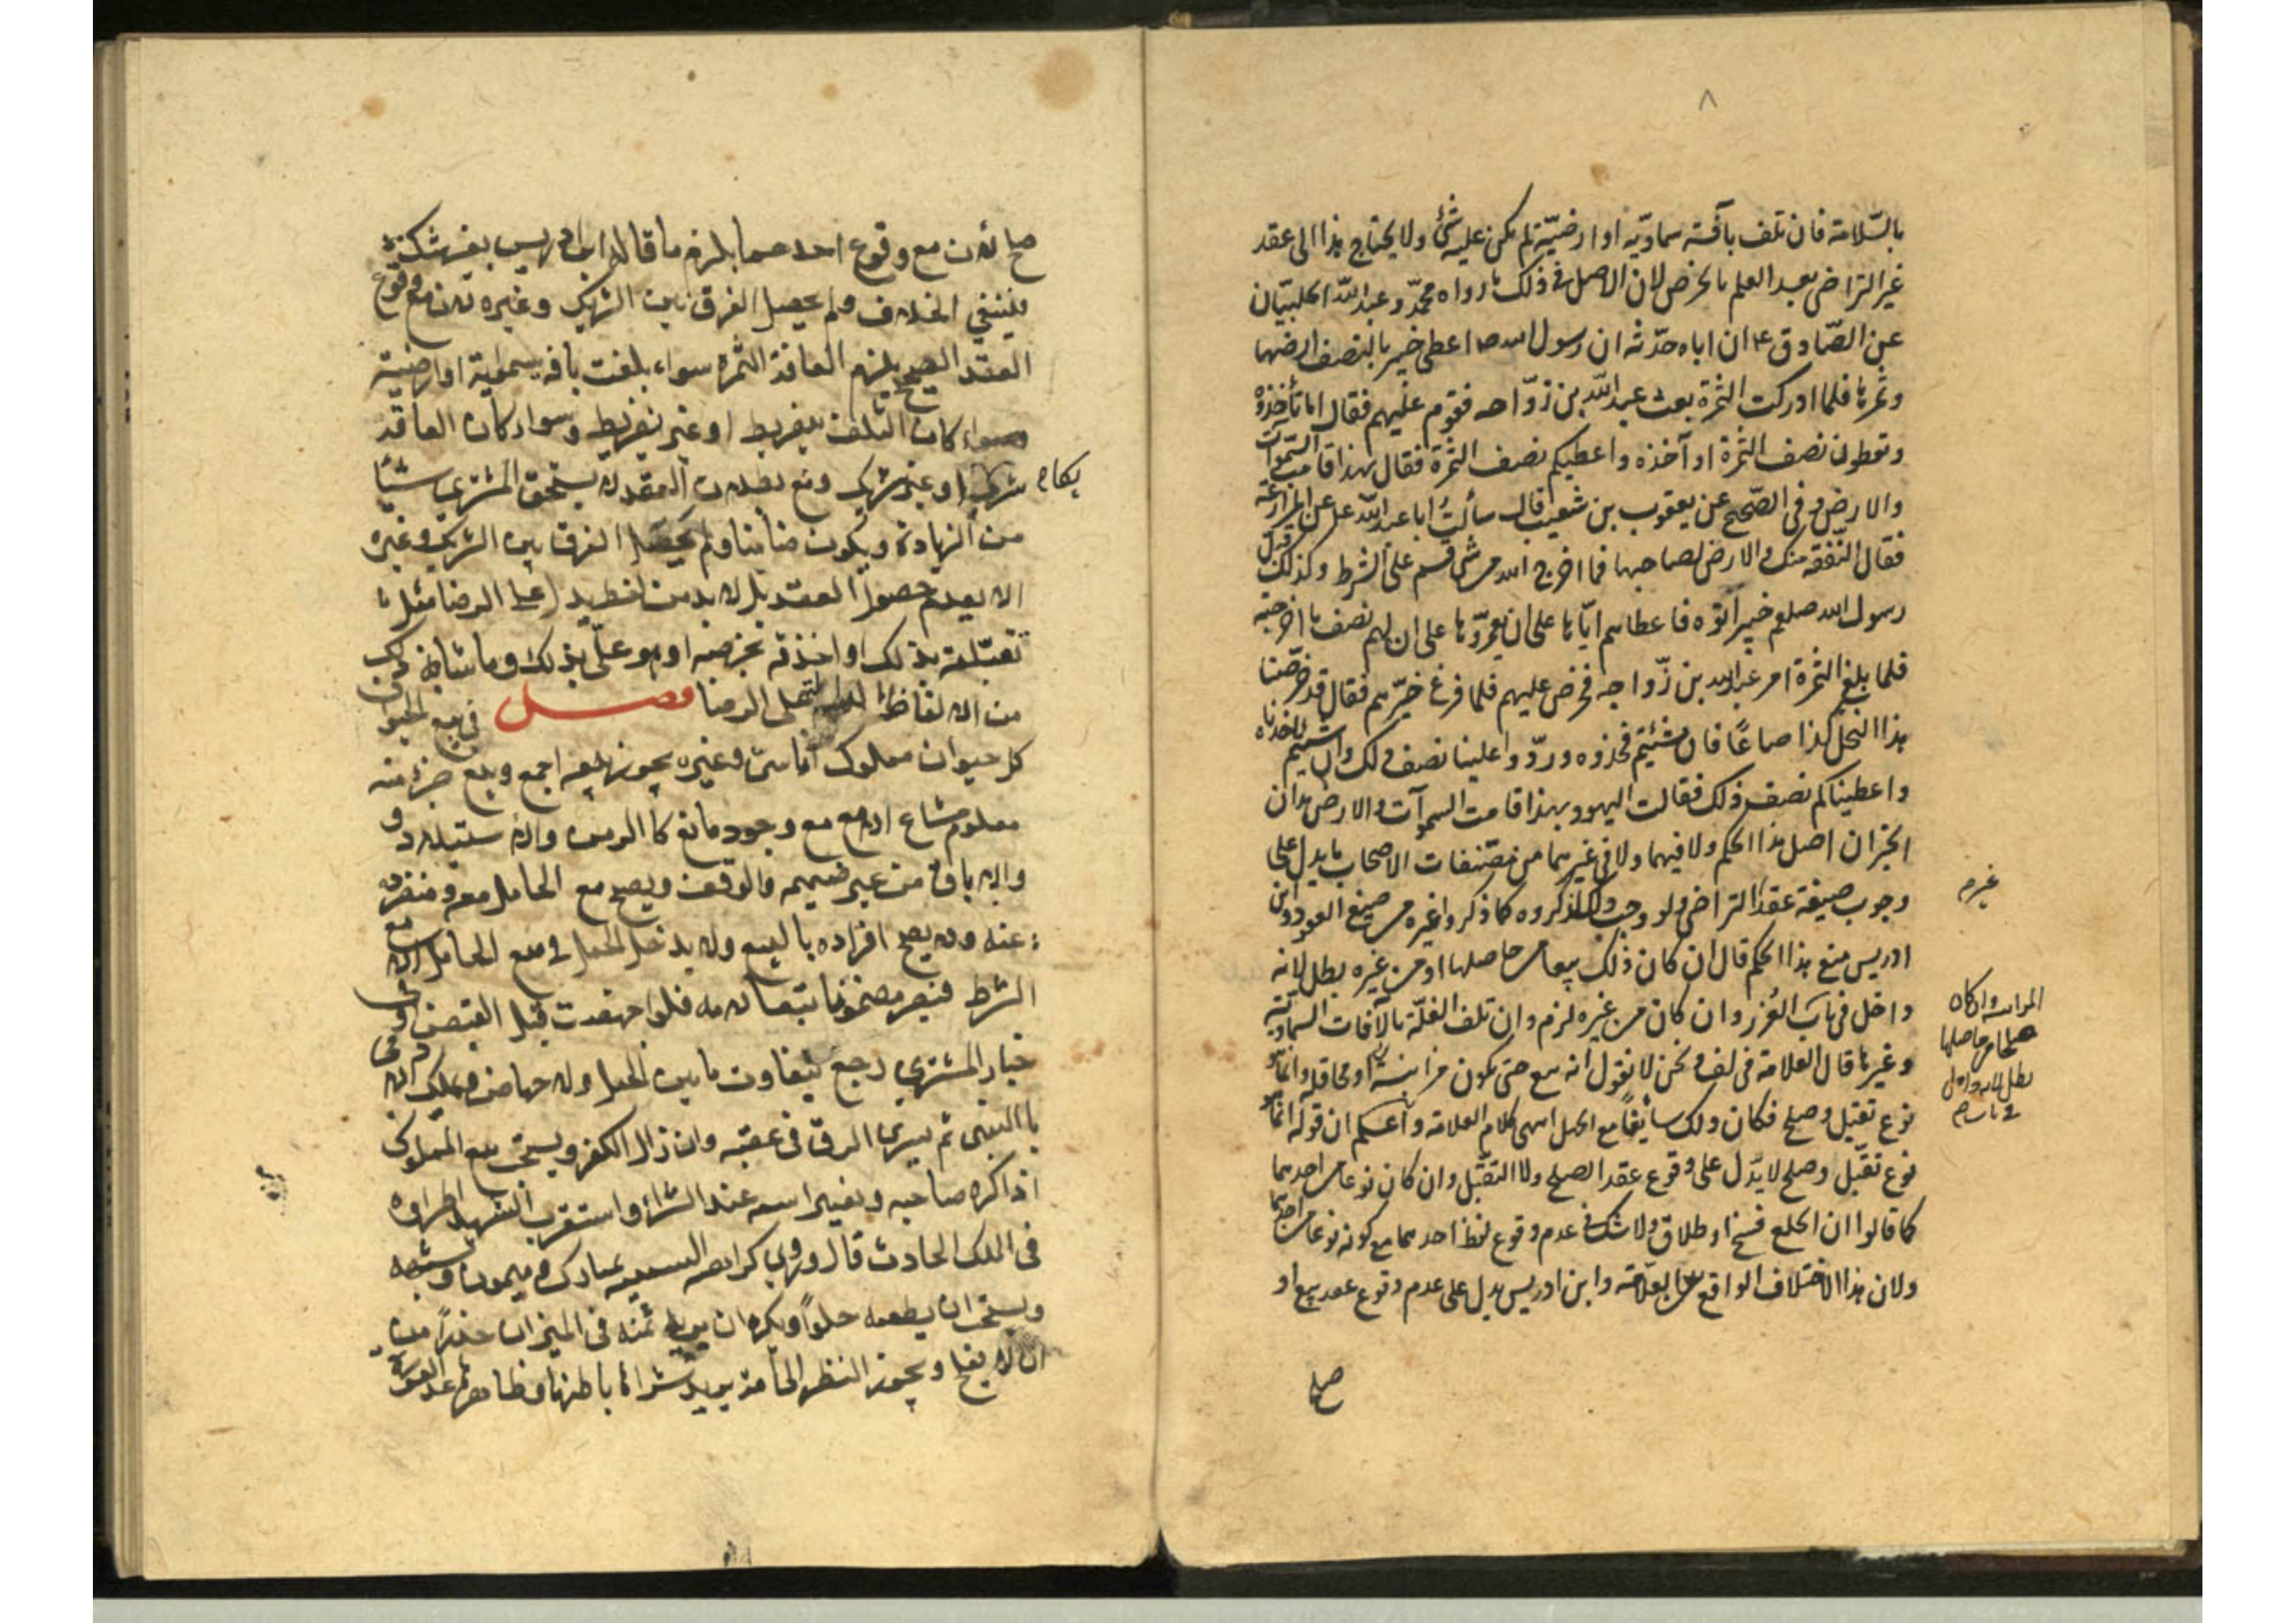 ٨
بالسّلامة فان تلف بآفة سماويّه او ارضيّة لم يكن عليه شئ ولا يحتاج هذا الى عقد
غير التراضى بعد العلم بالخرص لان الاصل فى ذلك ما رواه محمّد وعبد اللّه الحلبيّان
عن الصّادق ع ان اباه حدّثه ان رسول الله ص اعطى خيبر بالنصف ارضها
وثمرها فلما ادركت الثمرة بعث عبد اللّه بن روّاحه فقوم عليهم فقال اما تأخذوه
وتعطون نصف الثمرة او آخذه واعطيكم نصف الثمرة فقال بهذا قامت السّموات
والارض وفى الصّحيح عن يعقوب بن شعيب قال سألت ابا عبد اللّه ع عن المزارعة
فقال النّفقة منك والارض لصاحبها فما اخرج الله من شئ قسم على الشرط وكذلك قبل
رسول الله صلعم خيبر اتوه فاعطاهم ايّاها على ان يعمّروها على ان لهم نصف ما اخرجته
فلما بلغ الثمرة امر عبد الله بن روّاحه فخرص عليهم فلما فرغ خيّرهم فقال قد خرصنا
هذا النخل كذا صاعًا فان شئتم فخذوه وردّوا علينا نصف ذلك وان شئتم اخذناه
واعطيناكم نصف ذلك فقالت اليهود بهذا قامت السموآت والارض هذان
الخبران اصل هذا الحكم ولا فيهما ولا فى غيرهما من مصنفات الاصحاب ما يدل على
وجوب صيغة عقد التراضى ولو وجب ذلك لذكروه كما ذكروا غيره من صيغ العقود وابن
ادريس منع هذا الحكم قال ان كان ذلك بيعا من حاصلها او من غيره بطل لانه
داخل فى باب الغرر وان كان من غيره لزم وان تلف الغلّة بالآفات السماويّة
وغيرها قال العلامة فى لف ونحن لا نقول انه بيع حتى يكون مزابنة او محاقلة وانما هو
نوع تقبّل وصلح فكان ذلك سائغا مع الجهل انتهى كلام العلامة واعلم ان قوله انما هو
نوع تقبّل وصلح لا يدّل على وقوع عقد الصلح ولا التقبّل وان كان نوعا من احدهما
كما قالوا ان الخلع فسخ او طلاق ولا شك فى عدم وقوع لفظ احدهما مع كونه نوعا من احدهما
ولان هذا الاختلاف الواقع بين العلّامة وابن ادريس يدل على عدم وقوع عقد بيع او
صلح
غيرم
صلح لان مع وقوع احدهما يلزم ما قاله ابن ادريس بغير شك
فينتفي الخلاف ولم يحصل الفرق بين الشريك وغيره لان مع وقوع
العقد الصحيح يلزم العاقد الثمرة سواء بلغت بافه سموية او ارضية
وسواء كان التلف بتفريط او غير تفريط وسواء كان العاقد
شريكا او غير شريك ومع بطلان العقد لا يستحق المشترى شيئا
من الزيادة ويكون ضامنا ولم يحصل الفرق بين الشريك وغيره
الا بعدم حصول العقد بل لا بد من لفظ يدل على الرضا مثل
تقبّلته بذلك او اخذته بخرصه او هو علىّ بذلك وما شابه ذلك
من الالفاظ الدالة على الرضا فصل فى بيع الحيوان
كل حيوان مملوك اناسىّ وغيره يجوز بيعه اجمع وبيع جزء منه
معلوم مشاع لا مع وجود مانع كالرهن والاستيلاد و
والاباق من غير ضميمه والوقف ويصح بيع الحامل معه ومنفرده
عنه ولا يصح افراده بالبيع ولا يدخل الحمل فى بيع الحامل الا مع
الشرط فيصير مضمونا تبعا لامه فلو اجهضت قبل القبض او فى
خيار المشترى رجع بتفاوت ما بين الحبل ولا حبل
بالسبى ثم يسرى الرق فى عقبه وان زال الكفر ويستحب بيع المملوك
اذا كره صاحبه وتغيير اسمه عند الشراء واستقرب الشهيد اطراده
فى الملك الحادث قال وروى كراهة التسمية بمبارك وميمون
ويستحب ان يطعمه حلوًا ويكره ان يريه ثمنه فى الميزان حذرًا من
ان لا يفلح ويجوز النظر الى امة يريد شرائها باطنها وظاهرها عدا العورة